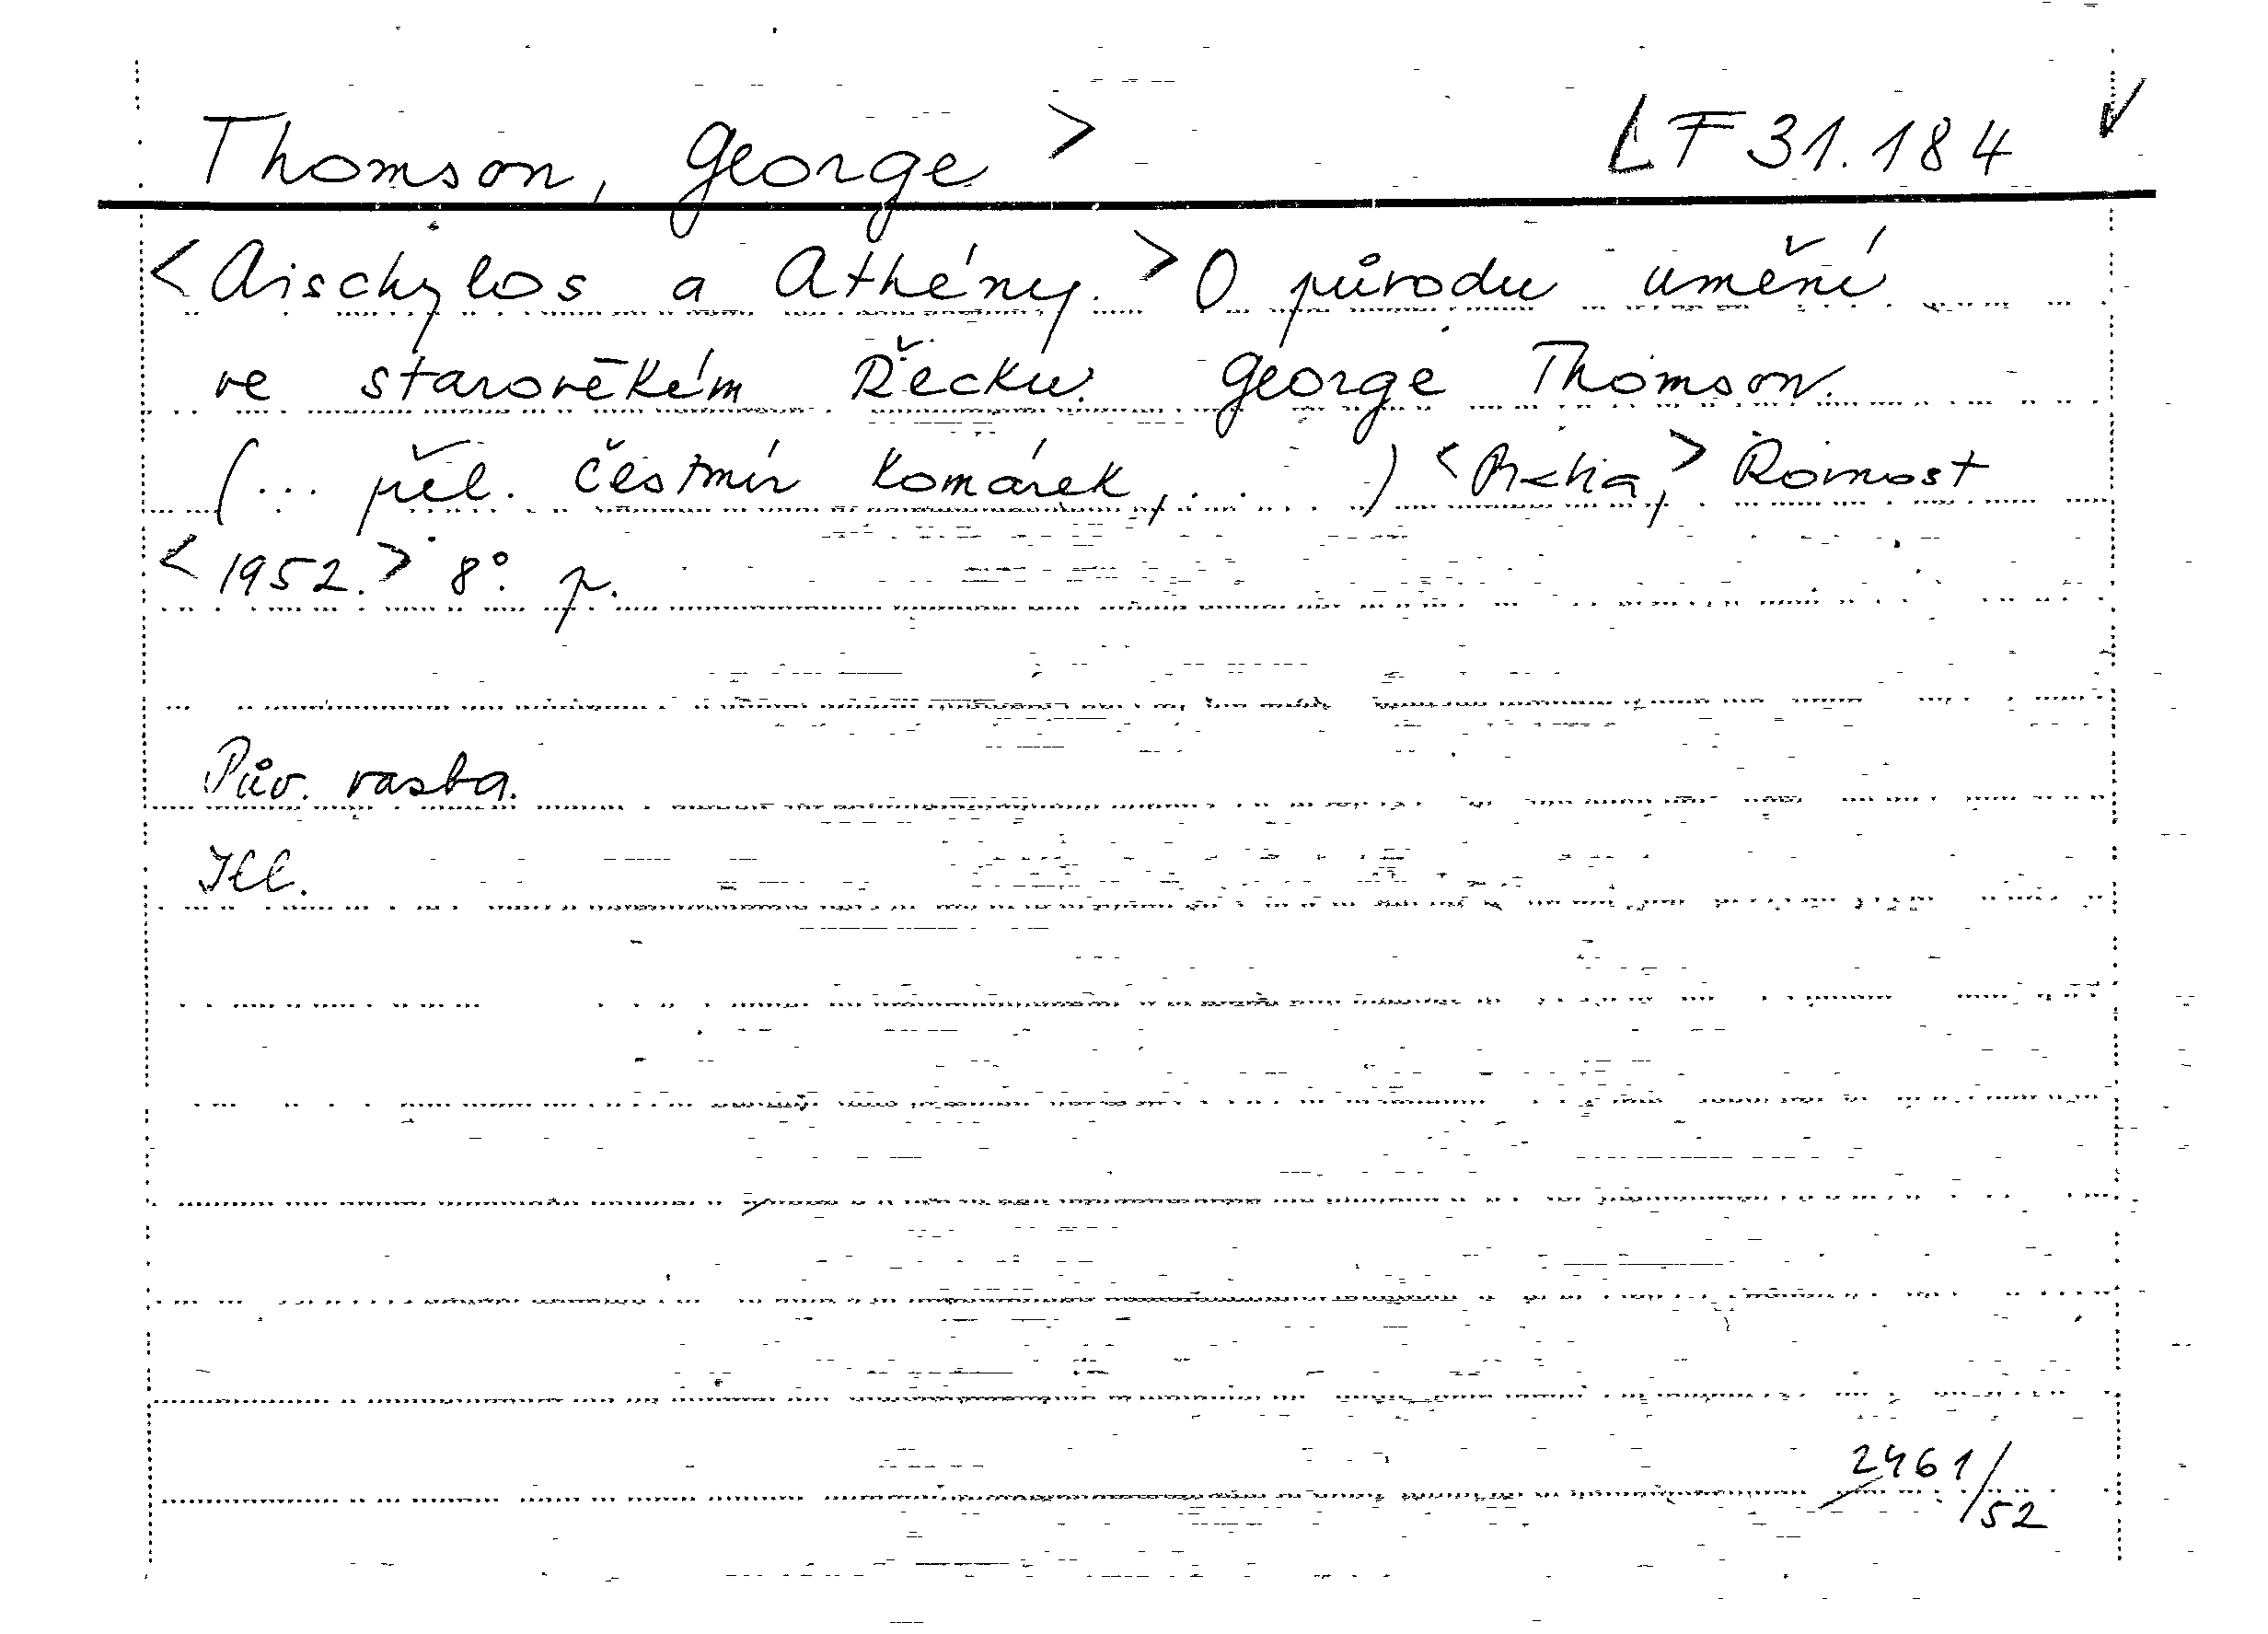 Thomson, George > LF 31.184 ✓
<Aischylos a Athény.> O původu umění
ve starověkém Řecku. George Thomson.
(... přel. Čestmír Komárek, ...) <Praha,> Rovnost
<1952.> 8°. p.
Pův. vazba.
Ill.
2461/52